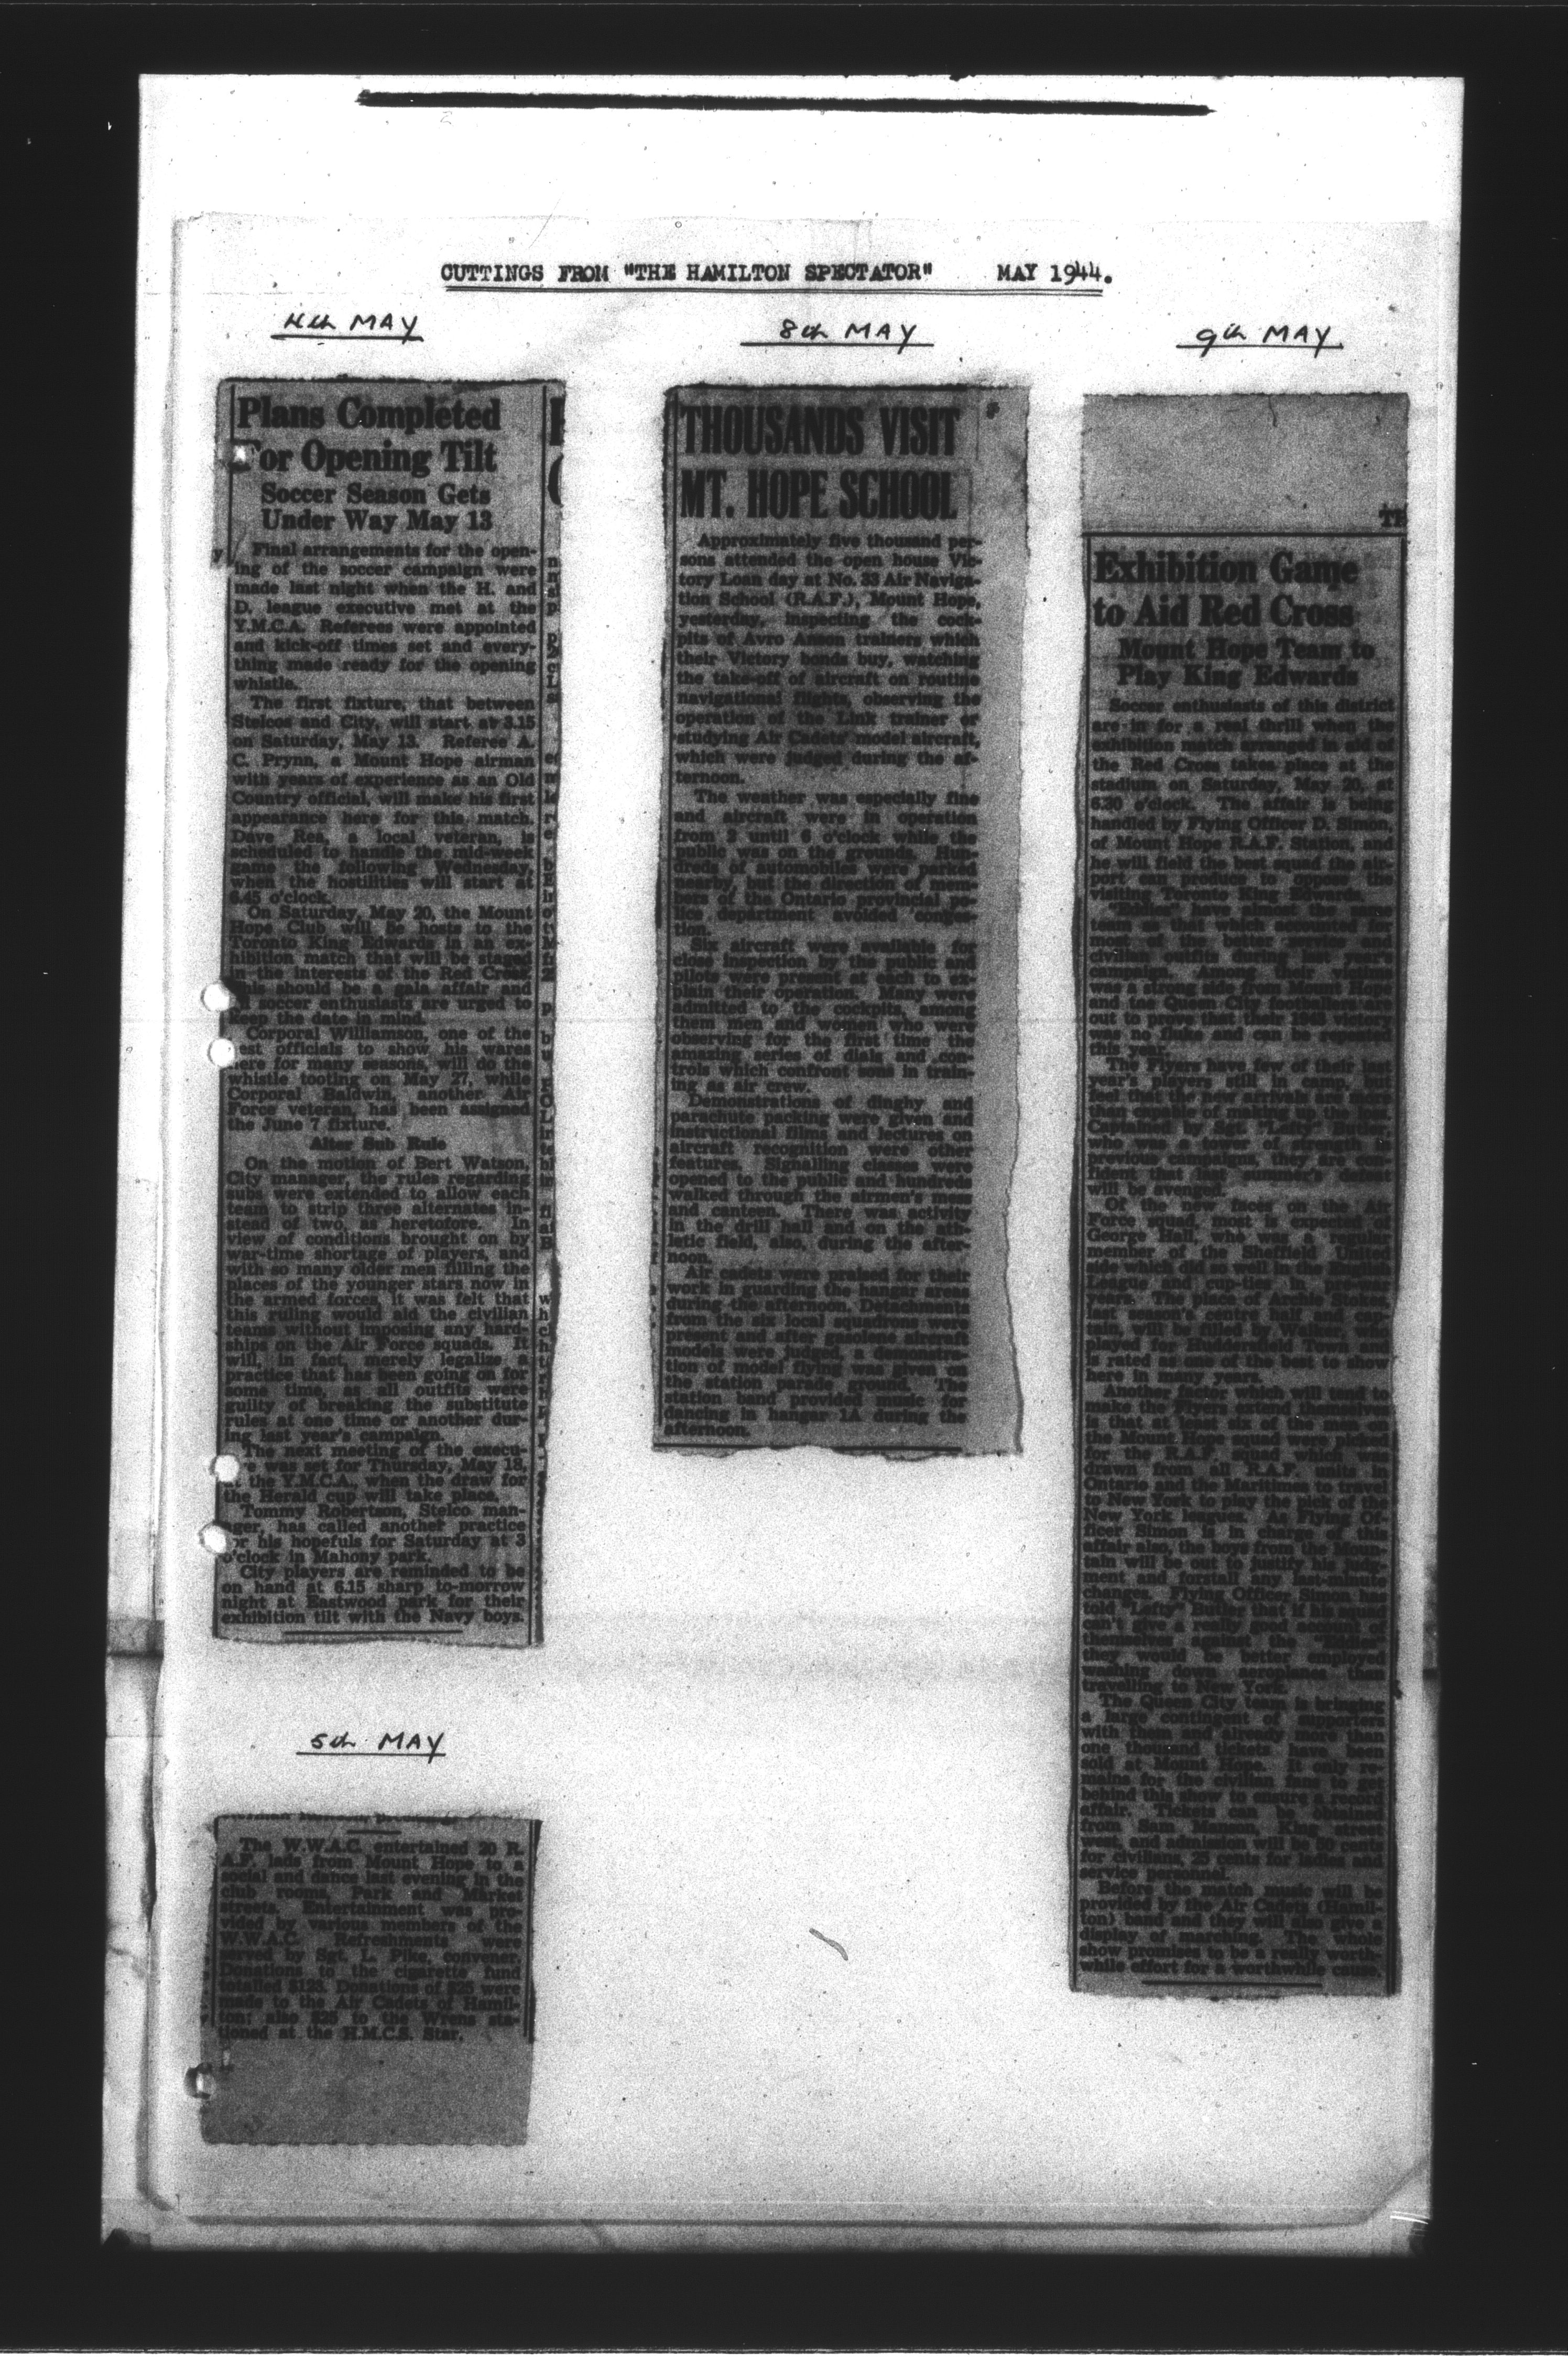 CUTTINGS FROM "THE HAMILTON SPECTATOR" MAY 1944.
4th MAY
Plans Completed
For Opening Tilt
Soccer Season Gets
Under Way May 13
Final arrangements for the open-
ing of the soccer campaign were
made last night when the H. and
D. league executive met at the
Y.M.C.A. Referees were appointed
and kick-off times set and every-
thing made ready for the opening
whistle.
The first fixture, that between
Stelcos and City, will start at 3.15
on Saturday, May 13. Referee A.
C. Prynn, a Mount Hope airman
with years of experience as an Old
Country official, will make his first
appearance here for this match.
Dave Rea, a local veteran, is
scheduled to handle the mid-week
game the following Wednesday,
when the hostilities will start at
6.45 o'clock.
On Saturday, May 20, the Mount
Hope Club will be hosts to the
Toronto King Edwards in an ex-
hibition match that will be staged
in the interests of the Red Cross.
This should be a gala affair and
soccer enthusiasts are urged to
keep the date in mind.
Corporal Williamson, one of the
est officials to show his wares
here for many seasons, will do the
whistle tooting on May 27, while
Corporal Baldwin, another Air
Force veteran, has been assigned
the June 7 fixture.
Alter Sub Rule
On the motion of Bert Watson,
City manager, the rules regarding
subs were extended to allow each
team to strip three alternates in-
stead of two, as heretofore. In
view of conditions brought on by
war-time shortage of players, and
with so many older men filling the
places of the younger stars now in
the armed forces, it was felt that
this ruling would aid the civilian
teams without imposing any hard-
ships on the Air Force squads. It
will, in fact, merely legalize a
practice that has been going on for
some time, as all outfits were
guilty of breaking the substitute
rules at one time or another dur-
ing last year's campaign.
The next meeting of the execu-
e was set for Thursday, May 18,
at the Y.M.C.A., when the draw for
the Herald cup will take place.
Tommy Robertson, Stelco man-
ager, has called another practice
for his hopefuls for Saturday at 3
o'clock in Mahony park.
City players are reminded to be
on hand at 6.15 sharp to-morrow
night at Eastwood park for their
exhibition tilt with the Navy boys.
5th MAY
The W.W.A.C. entertained 20 R.
A.F. lads from Mount Hope to a
social and dance last evening in the
club rooms, Park and Market
streets. Entertainment was pro-
vided by various members of the
W.W.A.C. Refreshments were
served by Sgt. L. Pike, convener.
Donations to the cigarette fund
totalled $128. Donations of $25 were
made to the Air Cadets of Hamil-
ton; also $25 to the Wrens sta-
tioned at the H.M.C.S. Star.
8th MAY
THOUSANDS VISIT
MT. HOPE SCHOOL
Approximately five thousand per-
sons attended the open house Vic-
tory Loan day at No. 33 Air Naviga-
tion School (R.A.F.), Mount Hope,
yesterday, inspecting the cock-
pits of Avro Anson trainers which
their Victory bonds buy, watching
the take-off of aircraft on routine
navigational flights, observing the
operation of the Link trainer or
studying Air Cadets' model aircraft,
which were judged during the af-
ternoon.
The weather was especially fine
and aircraft were in operation
from 2 until 6 o'clock while the
public was on the grounds. Hun-
dreds of automobiles were parked
nearby, but the direction of mem-
bers of the Ontario provincial po-
lice department avoided conges-
tion.
Six aircraft were available for
close inspection by the public and
pilots were present at each to ex-
plain their operation. Many were
admitted to the cockpits, among
them men and women who were
observing for the first time the
amazing series of dials and con-
trols which confront sons in train-
ing as air crew.
Demonstrations of dinghy and
parachute packing were given and
instructional films and lectures on
aircraft recognition were other
features. Signalling classes were
opened to the public and hundreds
walked through the airmen's mess
and canteen. There was activity
in the drill hall and on the ath-
letic field, also, during the after-
noon.
Air cadets were praised for their
work in guarding the hangar areas
during the afternoon. Detachments
from the six local squadrons were
present and after gasolene aircraft
models were judged, a demonstra-
tion of model flying was given on
the station parade ground. The
station band provided music for
dancing in hangar 1A during the
afternoon.
9th MAY
TH
Exhibition Game
to Aid Red Cross
Mount Hope Team to
Play King Edwards
Soccer enthusiasts of this district
are in for a real thrill when the
exhibition match arranged in aid of
the Red Cross takes place at the
stadium on Saturday, May 20, at
6.30 o'clock. The affair is being
handled by Flying Officer D. Simon,
of Mount Hope R.A.F. Station, and
he will field the best squad the air-
port can produce to oppose the
visiting Toronto King Edwards.
have almost the same
team as that which accounted for
most of the better service and
civilian outfits during last year's
campaign. Among their victims
was a strong side from Mount Hope
and the Queen City footballers are
out to prove that their 1943 victory
was no fluke and can be repeated
this year.
The Flyers have few of their last
year's players still in camp, but
feel that the new arrivals are more
than capable of making up the loss.
Captained by Sgt. "Lefty" Butler,
who was a tower of strength in
previous campaigns, they are con-
fident that last summer's defeat
will be avenged.
Of the new faces on the Air
Force squad, most is expected of
George Hall, who was a regular
member of the Sheffield United
side which did so well in the English
League and cup-ties in pre-war
years. The place of Archie
last season's centre half and cap-
tain, will be filled by Walker, who
played for Huddersfield Town and
is rated as one of the best to show
here in many years.
Another factor which will tend to
make the Flyers extend themselves
is that at least six of the men on
the Mount Hope squad were picked
for the R.A.F. squad which was
drawn from all R.A.F. units in
Ontario and the Maritimes to travel
to New York to play the pick of the
New York leagues. As Flying Of-
ficer Simon is in charge of this
affair also, the boys from the Moun-
tain will be out to justify his judg-
ment and forstall any last-minute
changes. Flying Officer Simon has
told "Lefty" Butler that if his squad
can't give a really good account of
themselves against the "Eddies"
they would be better employed
washing down aeroplanes than
travelling to New York.
The Queen City team is bringing
a large contingent of supporters
with them and already more than
one thousand tickets have been
sold at Mount Hope. It only re-
mains for the civilian fans to get
behind this show to ensure a record
affair. Tickets can be obtained
from Sam Manson, King street
west, and admission will be 50 cents
for civilians, 25 cents for ladies and
service personnel.
Before the match music will be
provided by the Air Cadets (Hamil-
ton) band and they will also give a
display of marching. The whole
show promises to be a really worth-
while effort for a worthwhile cause.